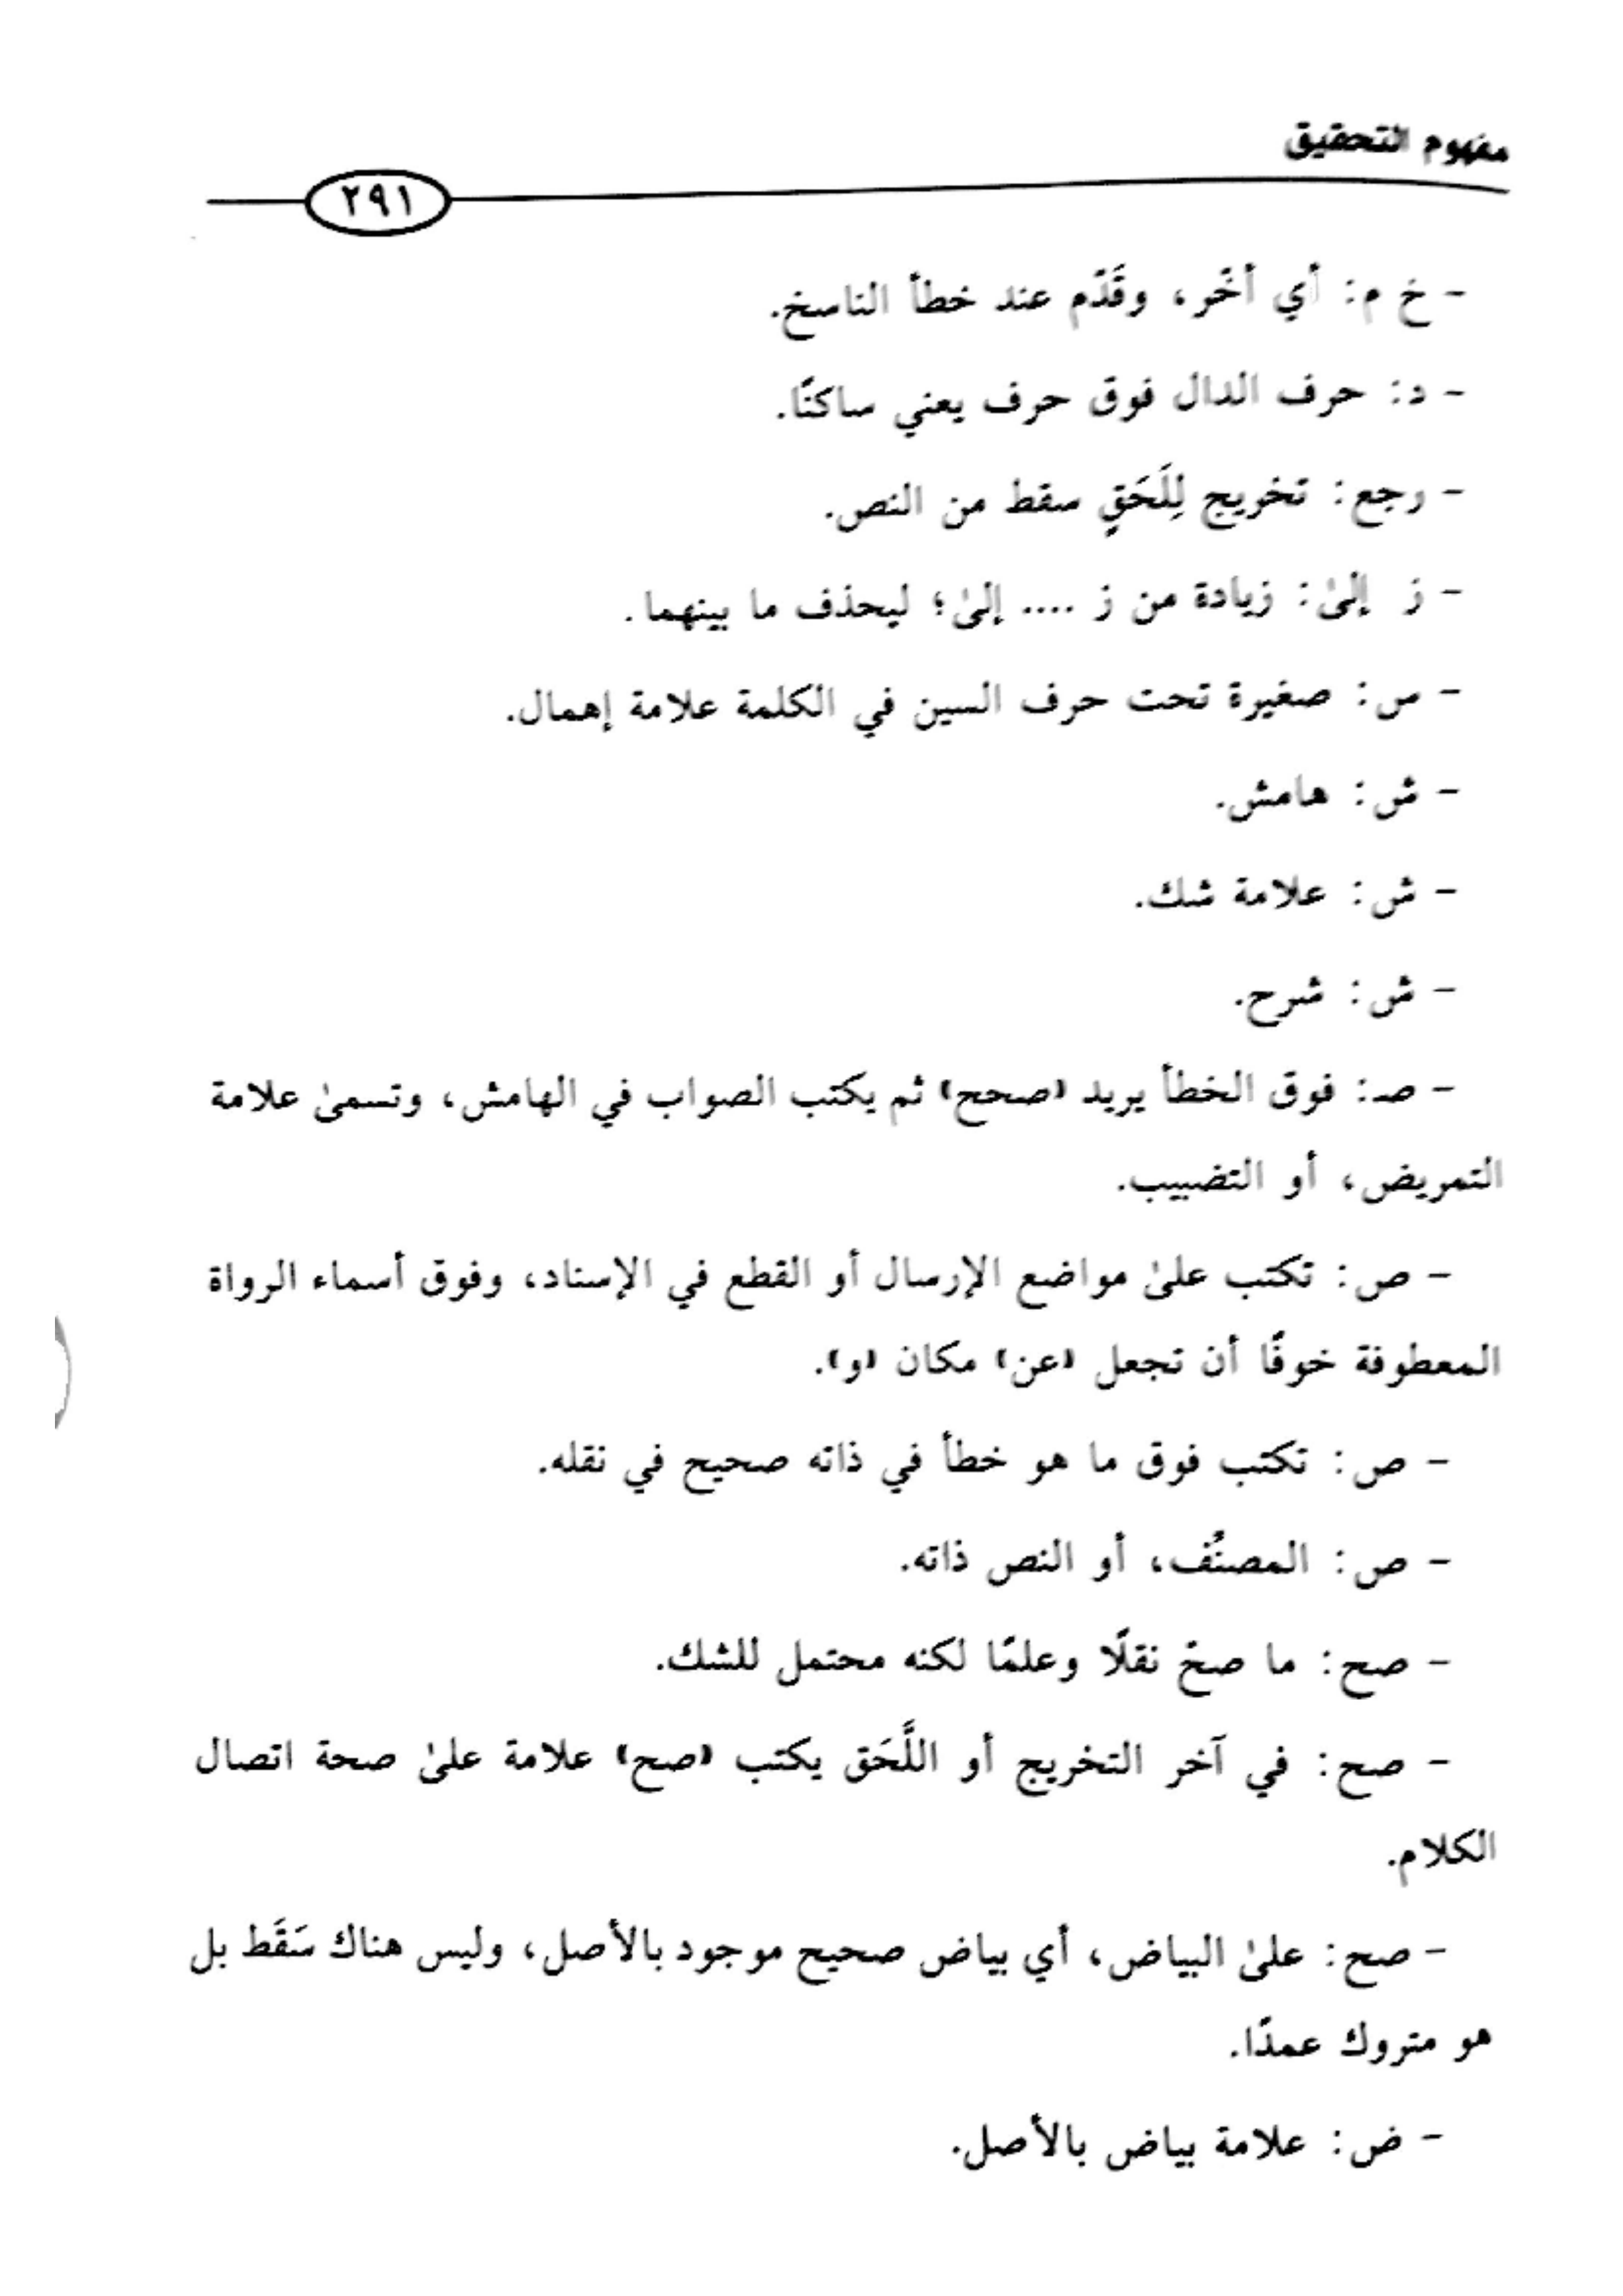 مفهوم التحقيق
٢٩١
- خ م: أي أخّر، وقَدّم عند خطأ الناسخ.
- د: حرف الدال فوق حرف يعني ساكنًا.
- رجع: تخريج لِلَحَقٍ سقط من النص.
- ز إلىٰ: زيادة من ز .... إلىٰ؛ ليحذف ما بينهما.
- س: صغيرة تحت حرف السين في الكلمة علامة إهمال.
- ش: هامش.
- ش: علامة شك.
- ش: شرح.
- صـ: فوق الخطأ يريد (صحح) ثم يكتب الصواب في الهامش، وتسمىٰ علامة
التمريض، أو التضبيب.
- ص: تكتب علىٰ مواضع الإرسال أو القطع في الإسناد، وفوق أسماء الرواة
المعطوفة خوفًا أن تجعل (عن) مكان (و).
- ص: تكتب فوق ما هو خطأ في ذاته صحيح في نقله.
- ص: المصنُف، أو النص ذاته.
- صح: ما صحّ نقلًا وعلمًا لكنه محتمل للشك.
- صح: في آخر التخريج أو اللَّحَق يكتب (صح) علامة علىٰ صحة اتصال
الكلام.
- صح: علىٰ البياض، أي بياض صحيح موجود بالأصل، وليس هناك سَقَط بل
هو متروك عمدًا.
- ض: علامة بياض بالأصل.